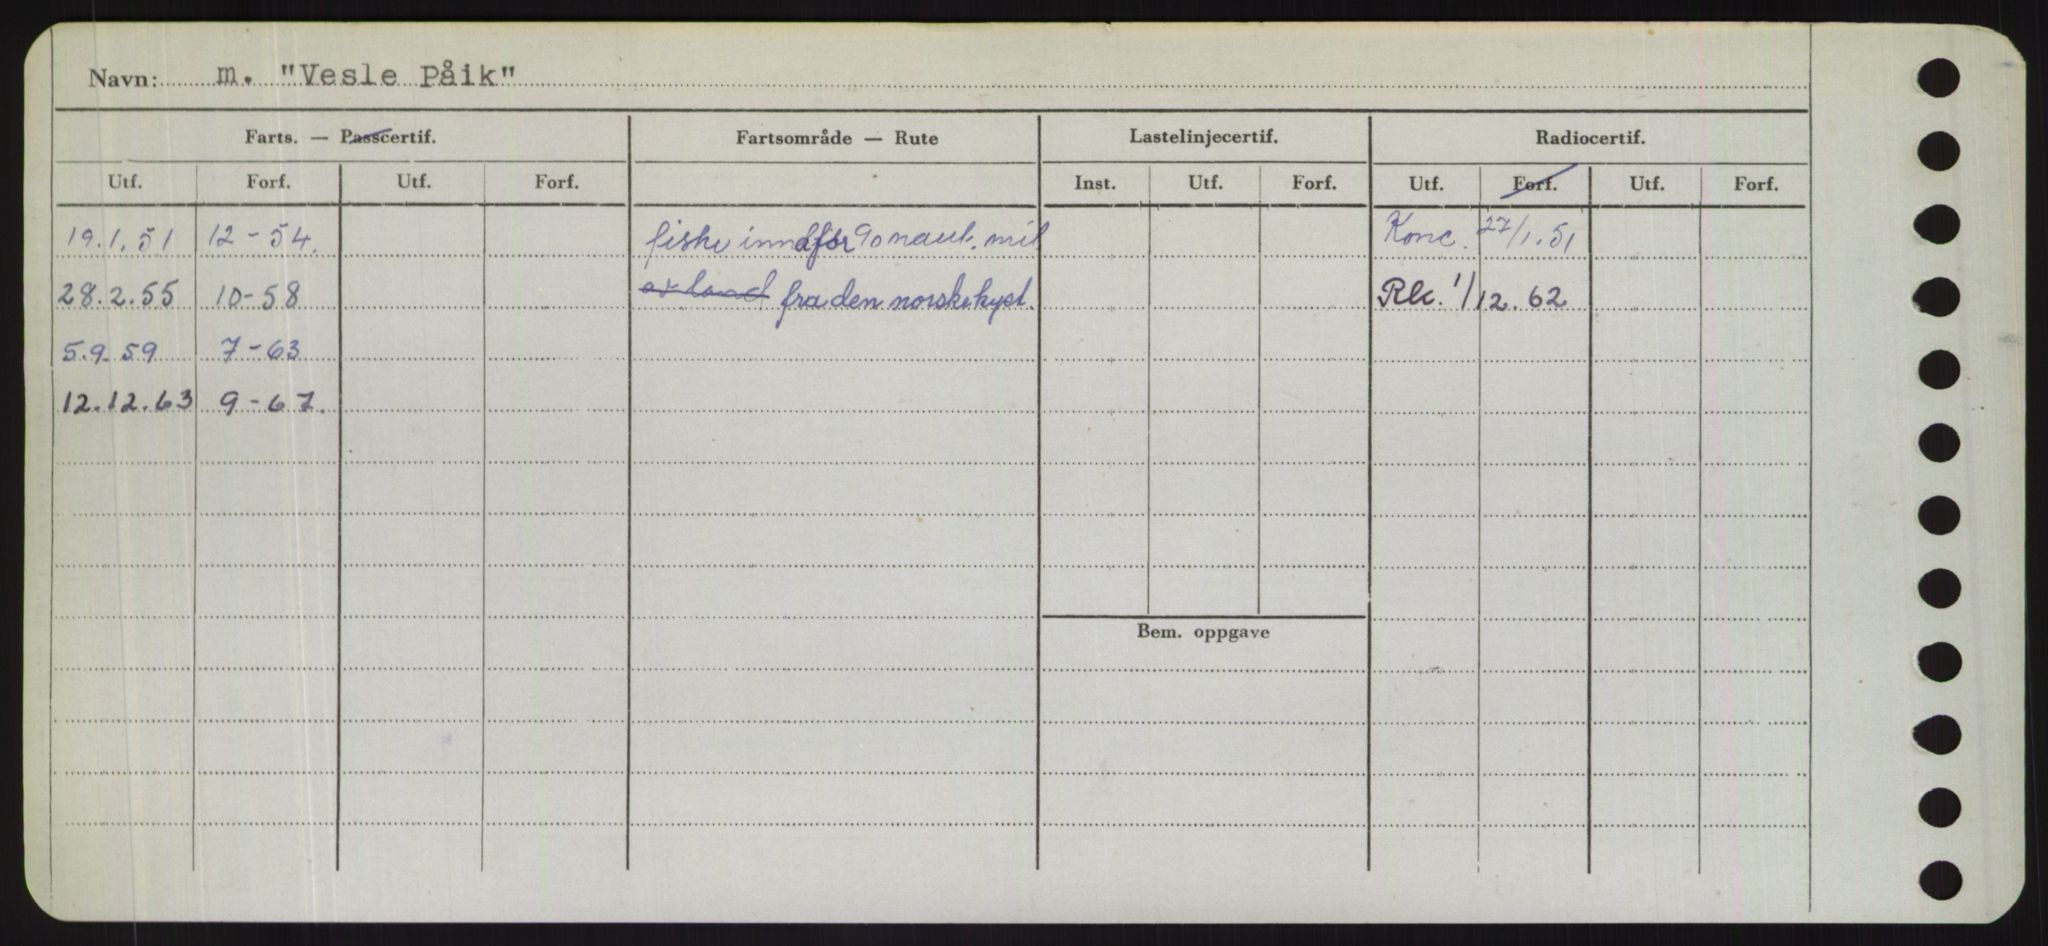 Navn: m. "Vesle Påik"
Farts. — Passcertif. Fartsområde — Rute Lastelinjecertif. Radiocertif.
Utf. Forf. Utf. Forf. Inst. Utf. Forf. Utf. Forf. Utf. Forf.
19.1.51 12-54. fiske innafor 90 naut. mil Konc. 27/1.51
28.2.55 10-58 av land fra den norske kyst. Rlc. 1/12.62
5.9.59 7-63
12.12.63 9-67.
Bem. oppgave